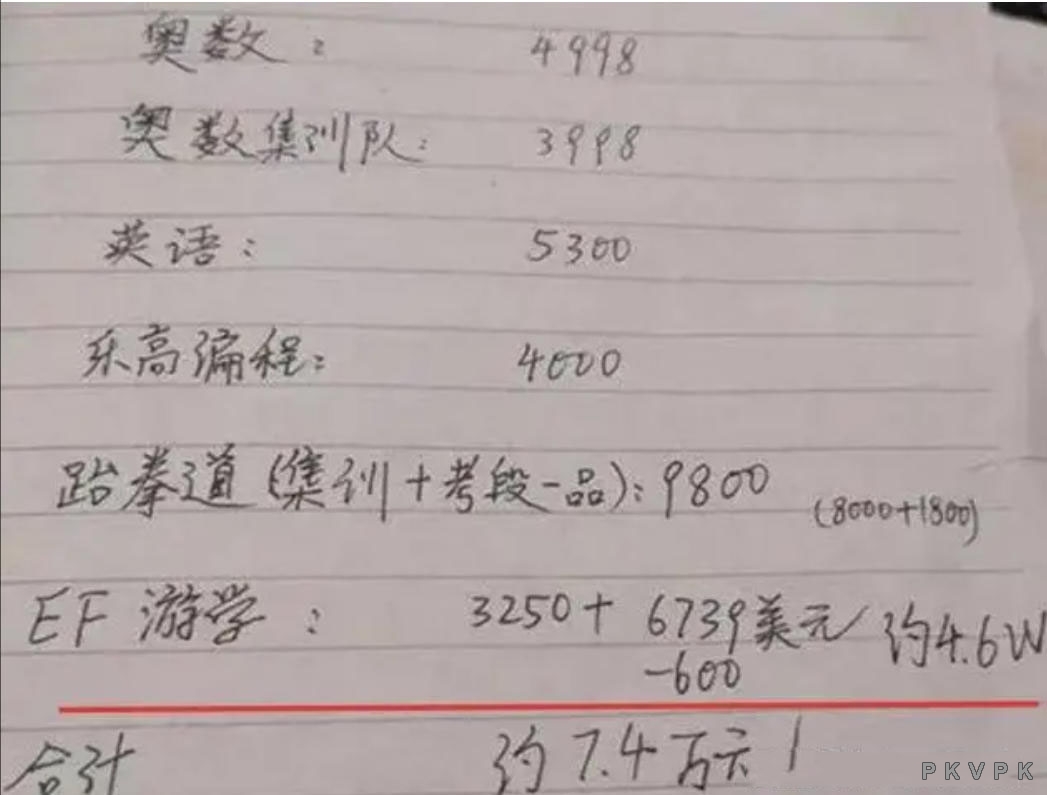 奥数： 4998
奥数集训队： 3998
英语： 5300
乐高编程： 4000
跆拳道（集训+考段一品）：9800 (8000+1800)
EF 游学： 3250+ 6739美元/ 约4.6W
-600
合计 约7.4万元！
PKVPK